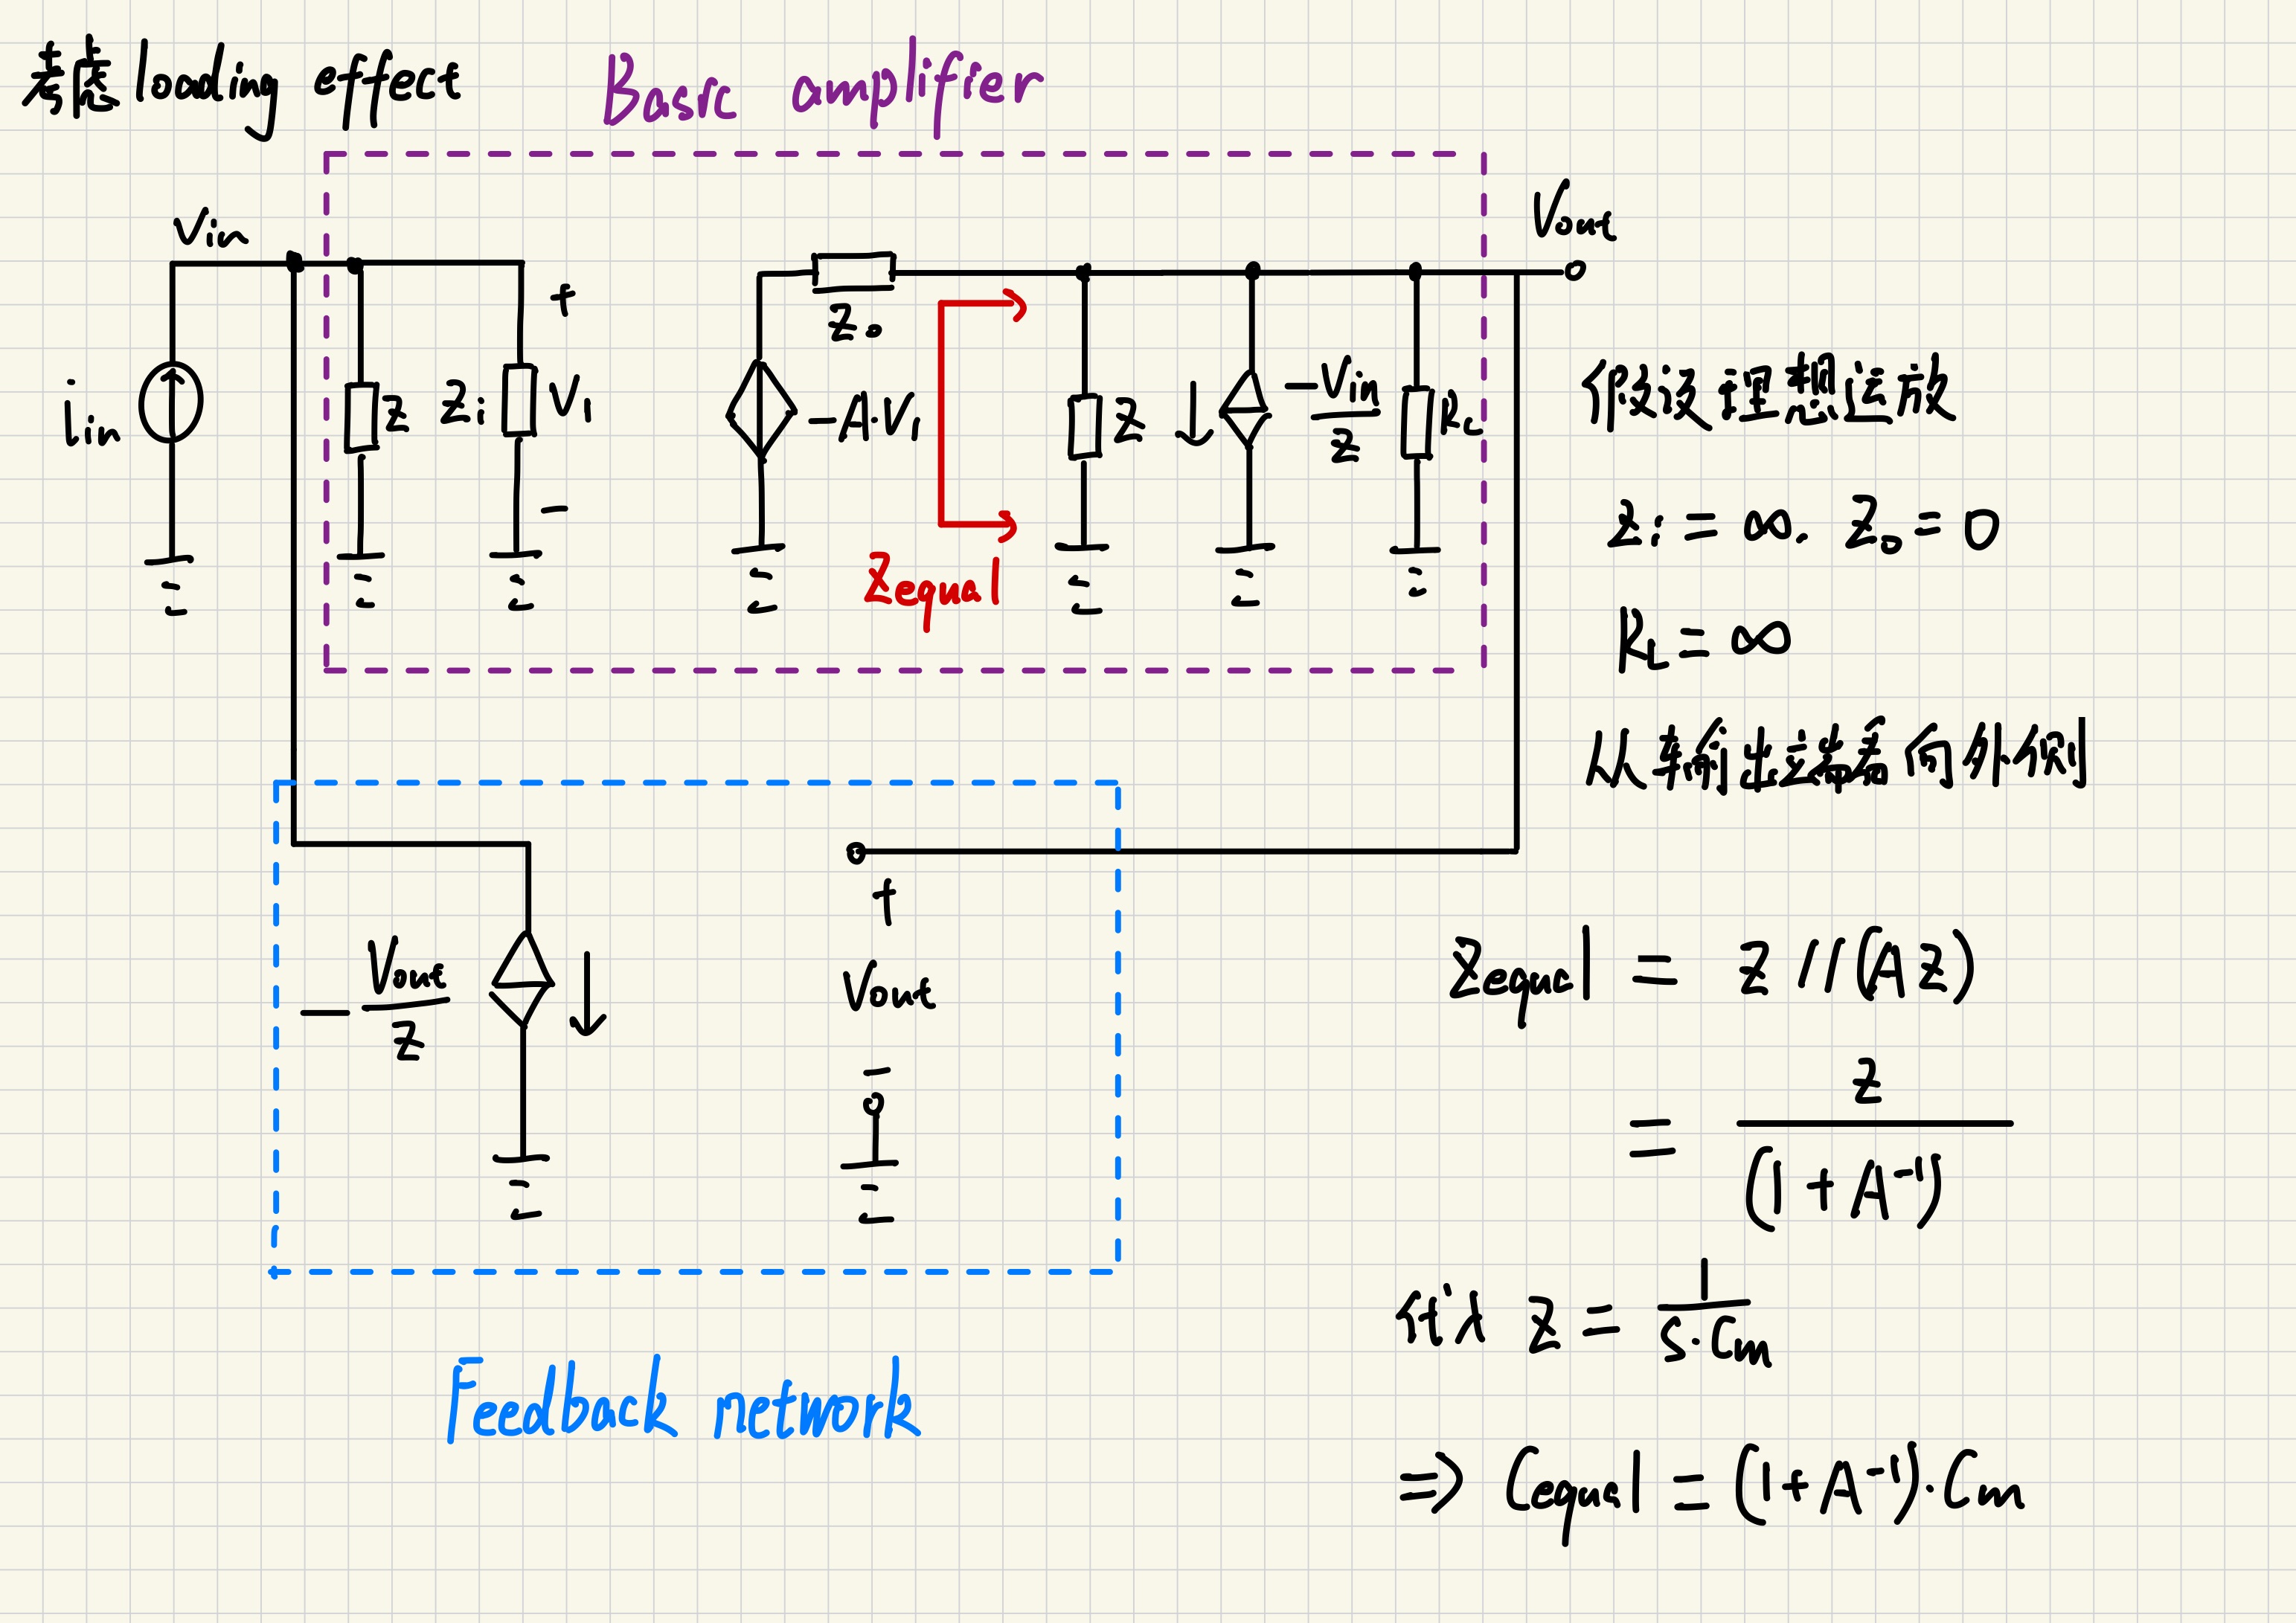 考虑 loading effect
Basic amplifier
Vin
Vout
iin
Z
Zi
+
V1
-
Zo
-A·V1
Zequal
Z
-Vin/Z
RL
假设理想运放
Zi = ∞. Zo = 0
RL = ∞
从输出端看向外侧
-Vout/Z
+
Vout
-
Feedback network
Zequal = Z // (AZ)
= Z/(1 + A⁻¹)
代入 Z = 1/(S·Cm)
⇒ Cequal = (1+A⁻¹)·Cm